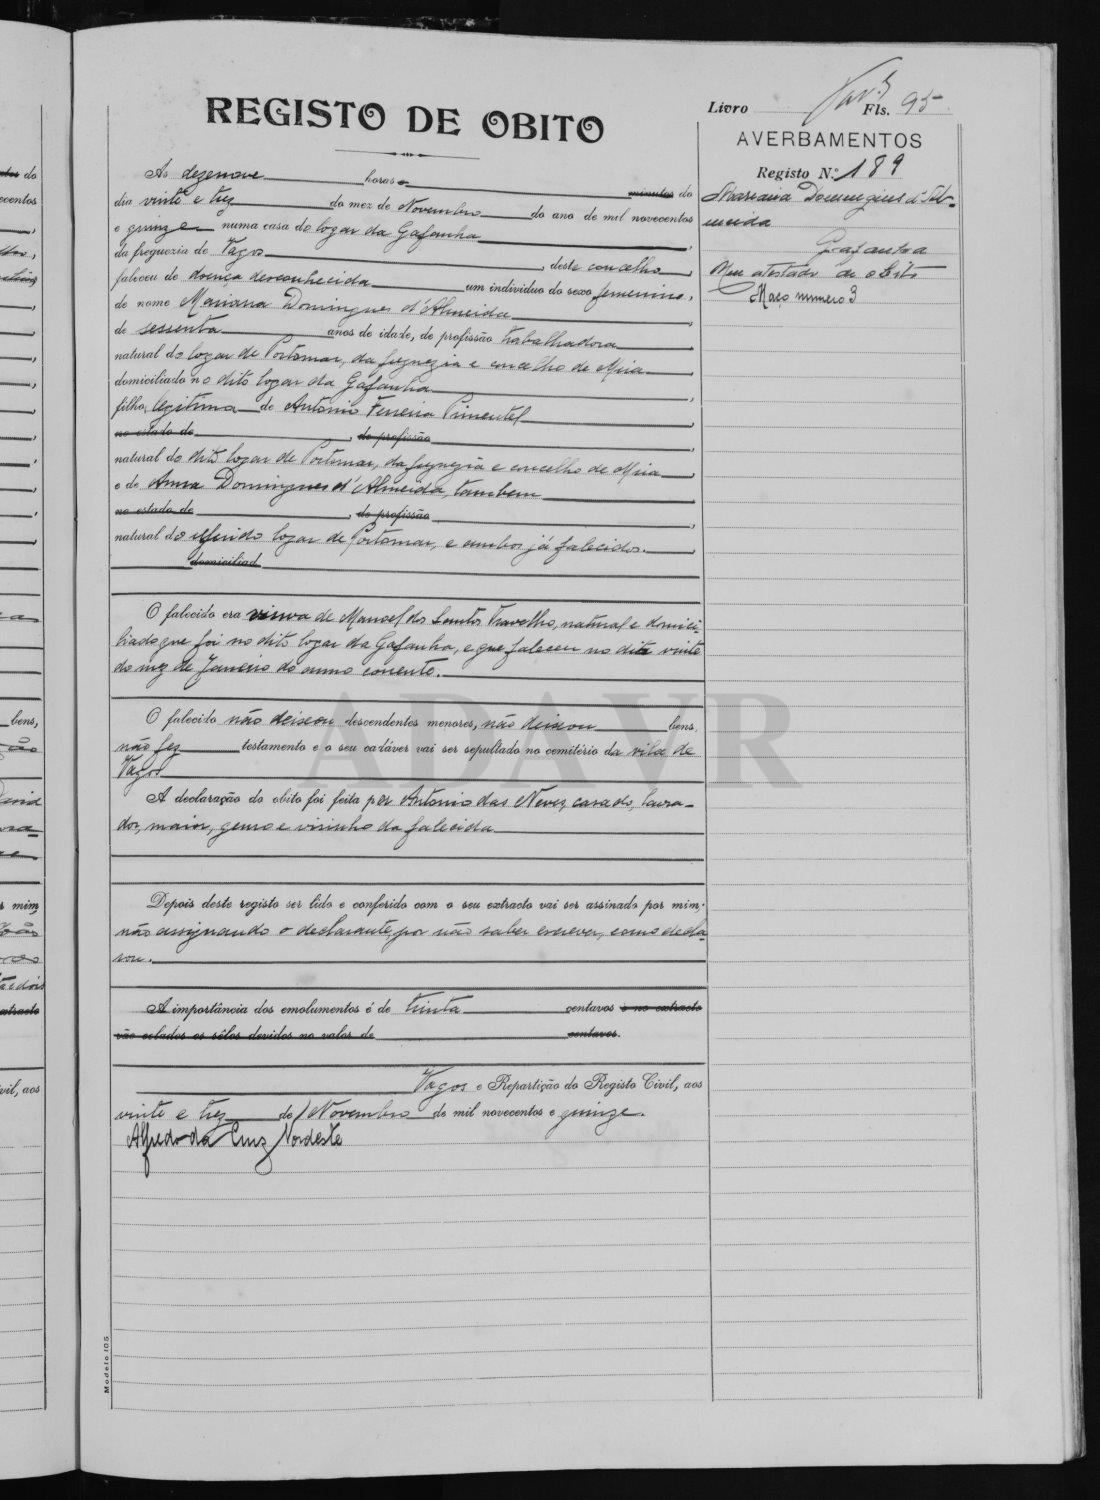 REGISTO DE OBITO
Ás dezenove horas e minutos do
dia vinte e trez do mez de Novembro do ano de mil novecentos
e quinze numa casa do logar da Gafanha,
da freguezia de Vagos, deste concelho,
faleceu de doença desconhecida um individuo do sexo femenino,
de nome Mariana Domingues d'Almeida,
de sessenta anos de idade, de profissão trabalhadora
natural do logar de Portomar, da freguezia e concelho de Mira,
domiciliado no dito logar da Gafanha,
filho, legitima de Antonio Ferreira Pimentel,
no estado de, de profissão
natural do dito logar de Portomar, da freguezia e concelho de Mira,
e de Anna Domingues d'Almeida, tambem
no estado de, de profissão,
natural do referido logar de Portomar, e ambos já falecidos.
domiciliad
O falecido era viuva de Manoel dos Santos Travelho, natural e domici-
liado que foi no dito logar da Gafanha, e que faleceu no dia vinte
do mez de Janeiro do anno corrente.
O falecido não deixou descendentes menores, não deixou bens,
não fez testamento e o seu cadáver vai ser sepultado no cemitério da vila de
Vagos
A declaração do obito foi feita por Antonio das Neves, casado, lavra-
dor, maior, genro e visinho da falecida
Depois deste registo ser lido e conferido com o seu extracto vai ser assinado por mim,
não assignando o declarante, por não saber escrever, como decla-
rou.
A importância dos emolumentos é de trinta centavos e no extracto
vão colados os sêlos devidos no valor de centavos.
Vagos e Repartição do Registo Civil, aos
vinte e trez de Novembro de mil novecentos e quinze.
Alfredo da Cruz Nordeste
Modelo 105
Livro Fls. 95
AVERBAMENTOS
Registo N.º 189
Mariana Domingues d'Al-
meida
Gafanha
Meu atestado de obito
Maço numero 3
ADAVR